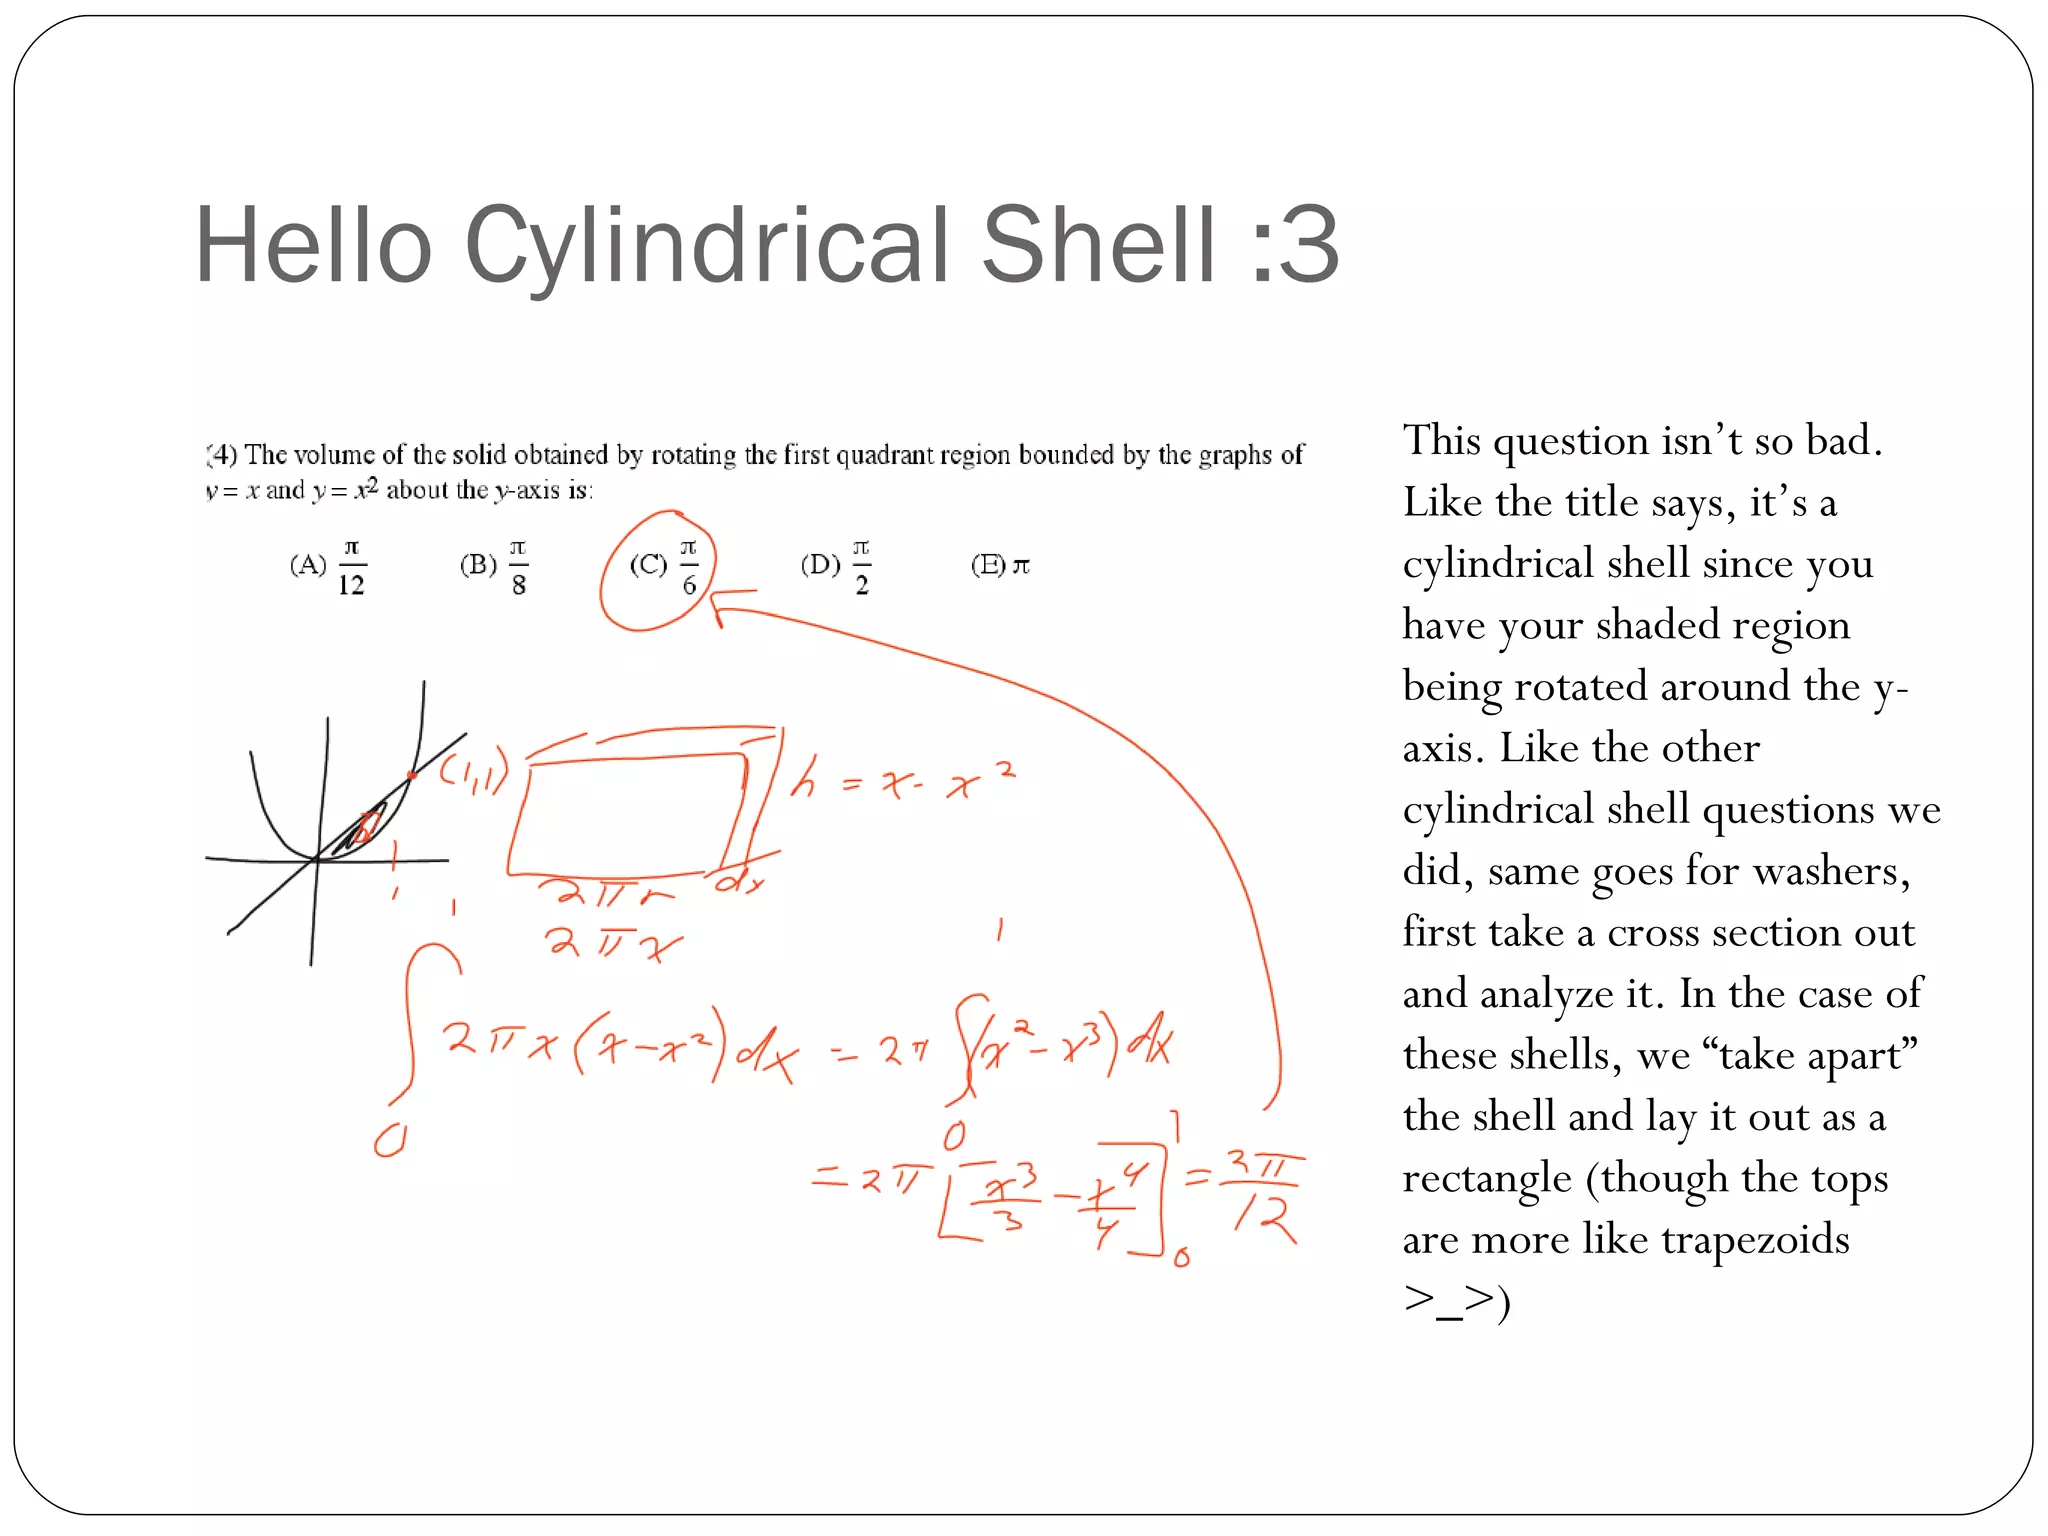 Hello Cylindrical Shell :3
(4) The volume of the solid obtained by rotating the first quadrant region bounded by the graphs of
y = x and y = x² about the y-axis is:
(A) π/12 (B) π/8 (C) π/6 (D) π/2 (E) π
(1,1)
h = x - x²
2πr dx
2πx
1
∫₀¹ 2πx(x-x²)dx = 2π ∫₀¹ (x²-x³)dx
= 2π [x³/3 - x⁴/4]₀¹ = 2π/12
This question isn’t so bad.
Like the title says, it’s a
cylindrical shell since you
have your shaded region
being rotated around the y-
axis. Like the other
cylindrical shell questions we
did, same goes for washers,
first take a cross section out
and analyze it. In the case of
these shells, we “take apart”
the shell and lay it out as a
rectangle (though the tops
are more like trapezoids
>_>)